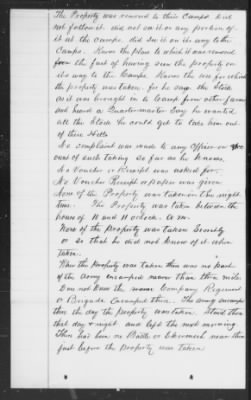 The Property was removed to their Camps did
not follow it. did not see it or any portion of
it at the Camps. did see it on its way to the
Camps. Knew the place to which it was removed
from the fact of having seen the property on
its way to the Camps. Knows the use for which
the property was taken, for he saw the Stock
as it was brought in to Camp from other farms
and heard a Quarter-master Say he wanted
all the Stock he could get to take them out
of these Hills
No complaint was made to any Officer on
of such taking so far as he knows.
No Voucher or Receipt was asked for.
No Voucher Receipt or paper was given
None of the Property was taken in the night
time. The Property was taken between the
hours of 10 and 11 O'clock A.M.
None of the Property was taken Secretly
or so that he did not know of it when
taken.
When the Property was taken there was no part
of the Army Encamped nearer than three miles.
Dont know the name Company Regiment
or Brigade Encamped there. The Army encamped
there the day the property was taken. Staid there
that day & night and left the next morning.
There had been no Battle or Skirmish near there
just before the Property was taken